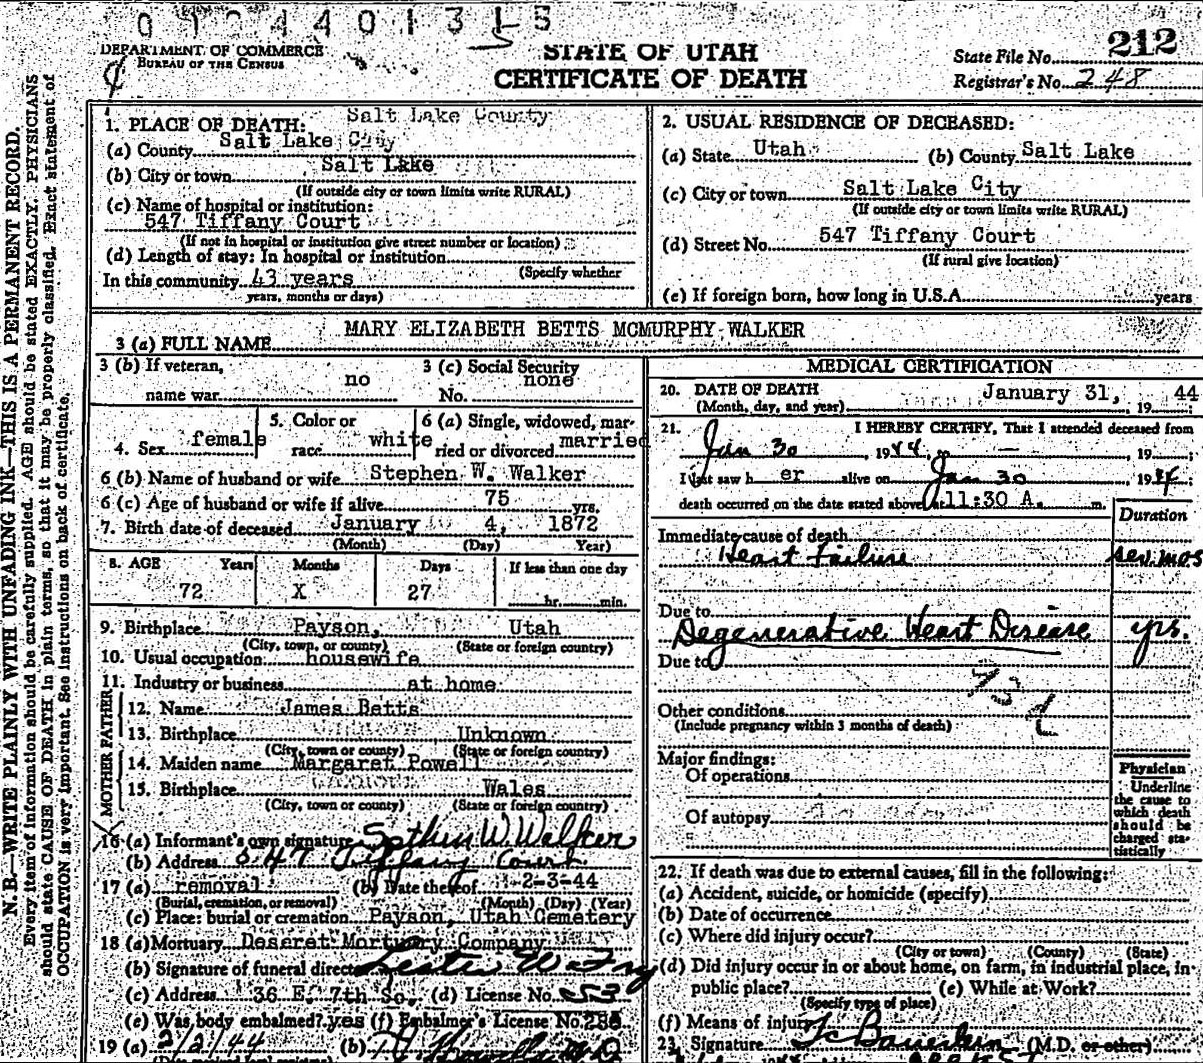 0 1 2 4 4 0 1 3 1 5
DEPARTMENT OF COMMERCE
BUREAU OF THE CENSUS
STATE OF UTAH
CERTIFICATE OF DEATH
State File No. 212
Registrar's No. 248
N. B.—WRITE PLAINLY WITH UNFADING INK—THIS IS A PERMANENT RECORD.
Every item of information should be carefully supplied. AGE should be stated EXACTLY. PHYSICIANS
should state CAUSE OF DEATH in plain terms, so that it may be properly classified. Exact statement of
OCCUPATION is very important. See instructions on back of certificate.
1. PLACE OF DEATH: Salt Lake County
(a) County Salt Lake City
(b) City or town Salt Lake
(If outside city or town limits write RURAL)
(c) Name of hospital or institution:
547 Tiffany Court
(If not in hospital or institution give street number or location)
(d) Length of stay: In hospital or institution
(Specify whether
In this community 43 years
years, months or days)
2. USUAL RESIDENCE OF DECEASED:
(a) State Utah (b) County Salt Lake
(c) City or town Salt Lake City
(If outside city or town limits write RURAL)
(d) Street No. 547 Tiffany Court
(If rural give location)
(e) If foreign born, how long in U.S.A. years
3 (a) FULL NAME MARY ELIZABETH BETTS MCMURPHY WALKER
3 (b) If veteran, name war no
3 (c) Social Security No. none
4. Sex female
5. Color or race white
6 (a) Single, widowed, married or divorced married
6 (b) Name of husband or wife Stephen W. Walker
6 (c) Age of husband or wife if alive 75 yrs.
7. Birth date of deceased January 4, 1872
(Month) (Day) Year)
8. AGE Years Months Days If less than one day
72 X 27 hr. min.
9. Birthplace Payson, Utah
(City, town, or county) (State or foreign country)
10. Usual occupation housewife
11. Industry or business at home
FATHER
12. Name James Betts
13. Birthplace Unknown
(City, town or county) (State or foreign country)
MOTHER
14. Maiden name Margaret Powell
15. Birthplace Wales
(City, town or county) (State or foreign country)
16 (a) Informant's own signature W Walker
(b) Address 547 Tiffany Court
17 (a) removal (b) Date thereof 2-3-44
(Burial, cremation, or removal) (Month) (Day) (Year)
(c) Place: burial or cremation Payson, Utah Cemetery
18 (a) Mortuary Deseret Mortuary Company
(b) Signature of funeral direct
(c) Address 36 E. 7th So. (d) License No. 253
(e) Was body embalmed? yes (f) Embalmer's License No.
19 (a) 2/2/44 (b)
MEDICAL CERTIFICATION
20. DATE OF DEATH January 31, 19 44
(Month, day, and year)
21. I HEREBY CERTIFY, That I attended deceased from
Jan 30, 1944, to —, 19
I last saw h er alive on Jan 30 1944
death occurred on the date stated above at 11:30 A. m.
Duration
Immediate cause of death
Heart Failure sev. mos
Due to
Degenerative Heart Disease yrs.
Due to
Other conditions
(Include pregnancy within 3 months of death)
Major findings:
Of operations
Of autopsy
Physician
Underline
the cause to
which death
should be
charged sta-
tistically
22. If death was due to external causes, fill in the following:
(a) Accident, suicide, or homicide (specify)
(b) Date of occurrence
(c) Where did injury occur?
(City or town) (County) (State)
(d) Did injury occur in or about home, on farm, in industrial place, in
public place? (e) While at Work?
(Specify type of place)
(f) Means of injury
23. Signature (M.D. or other)